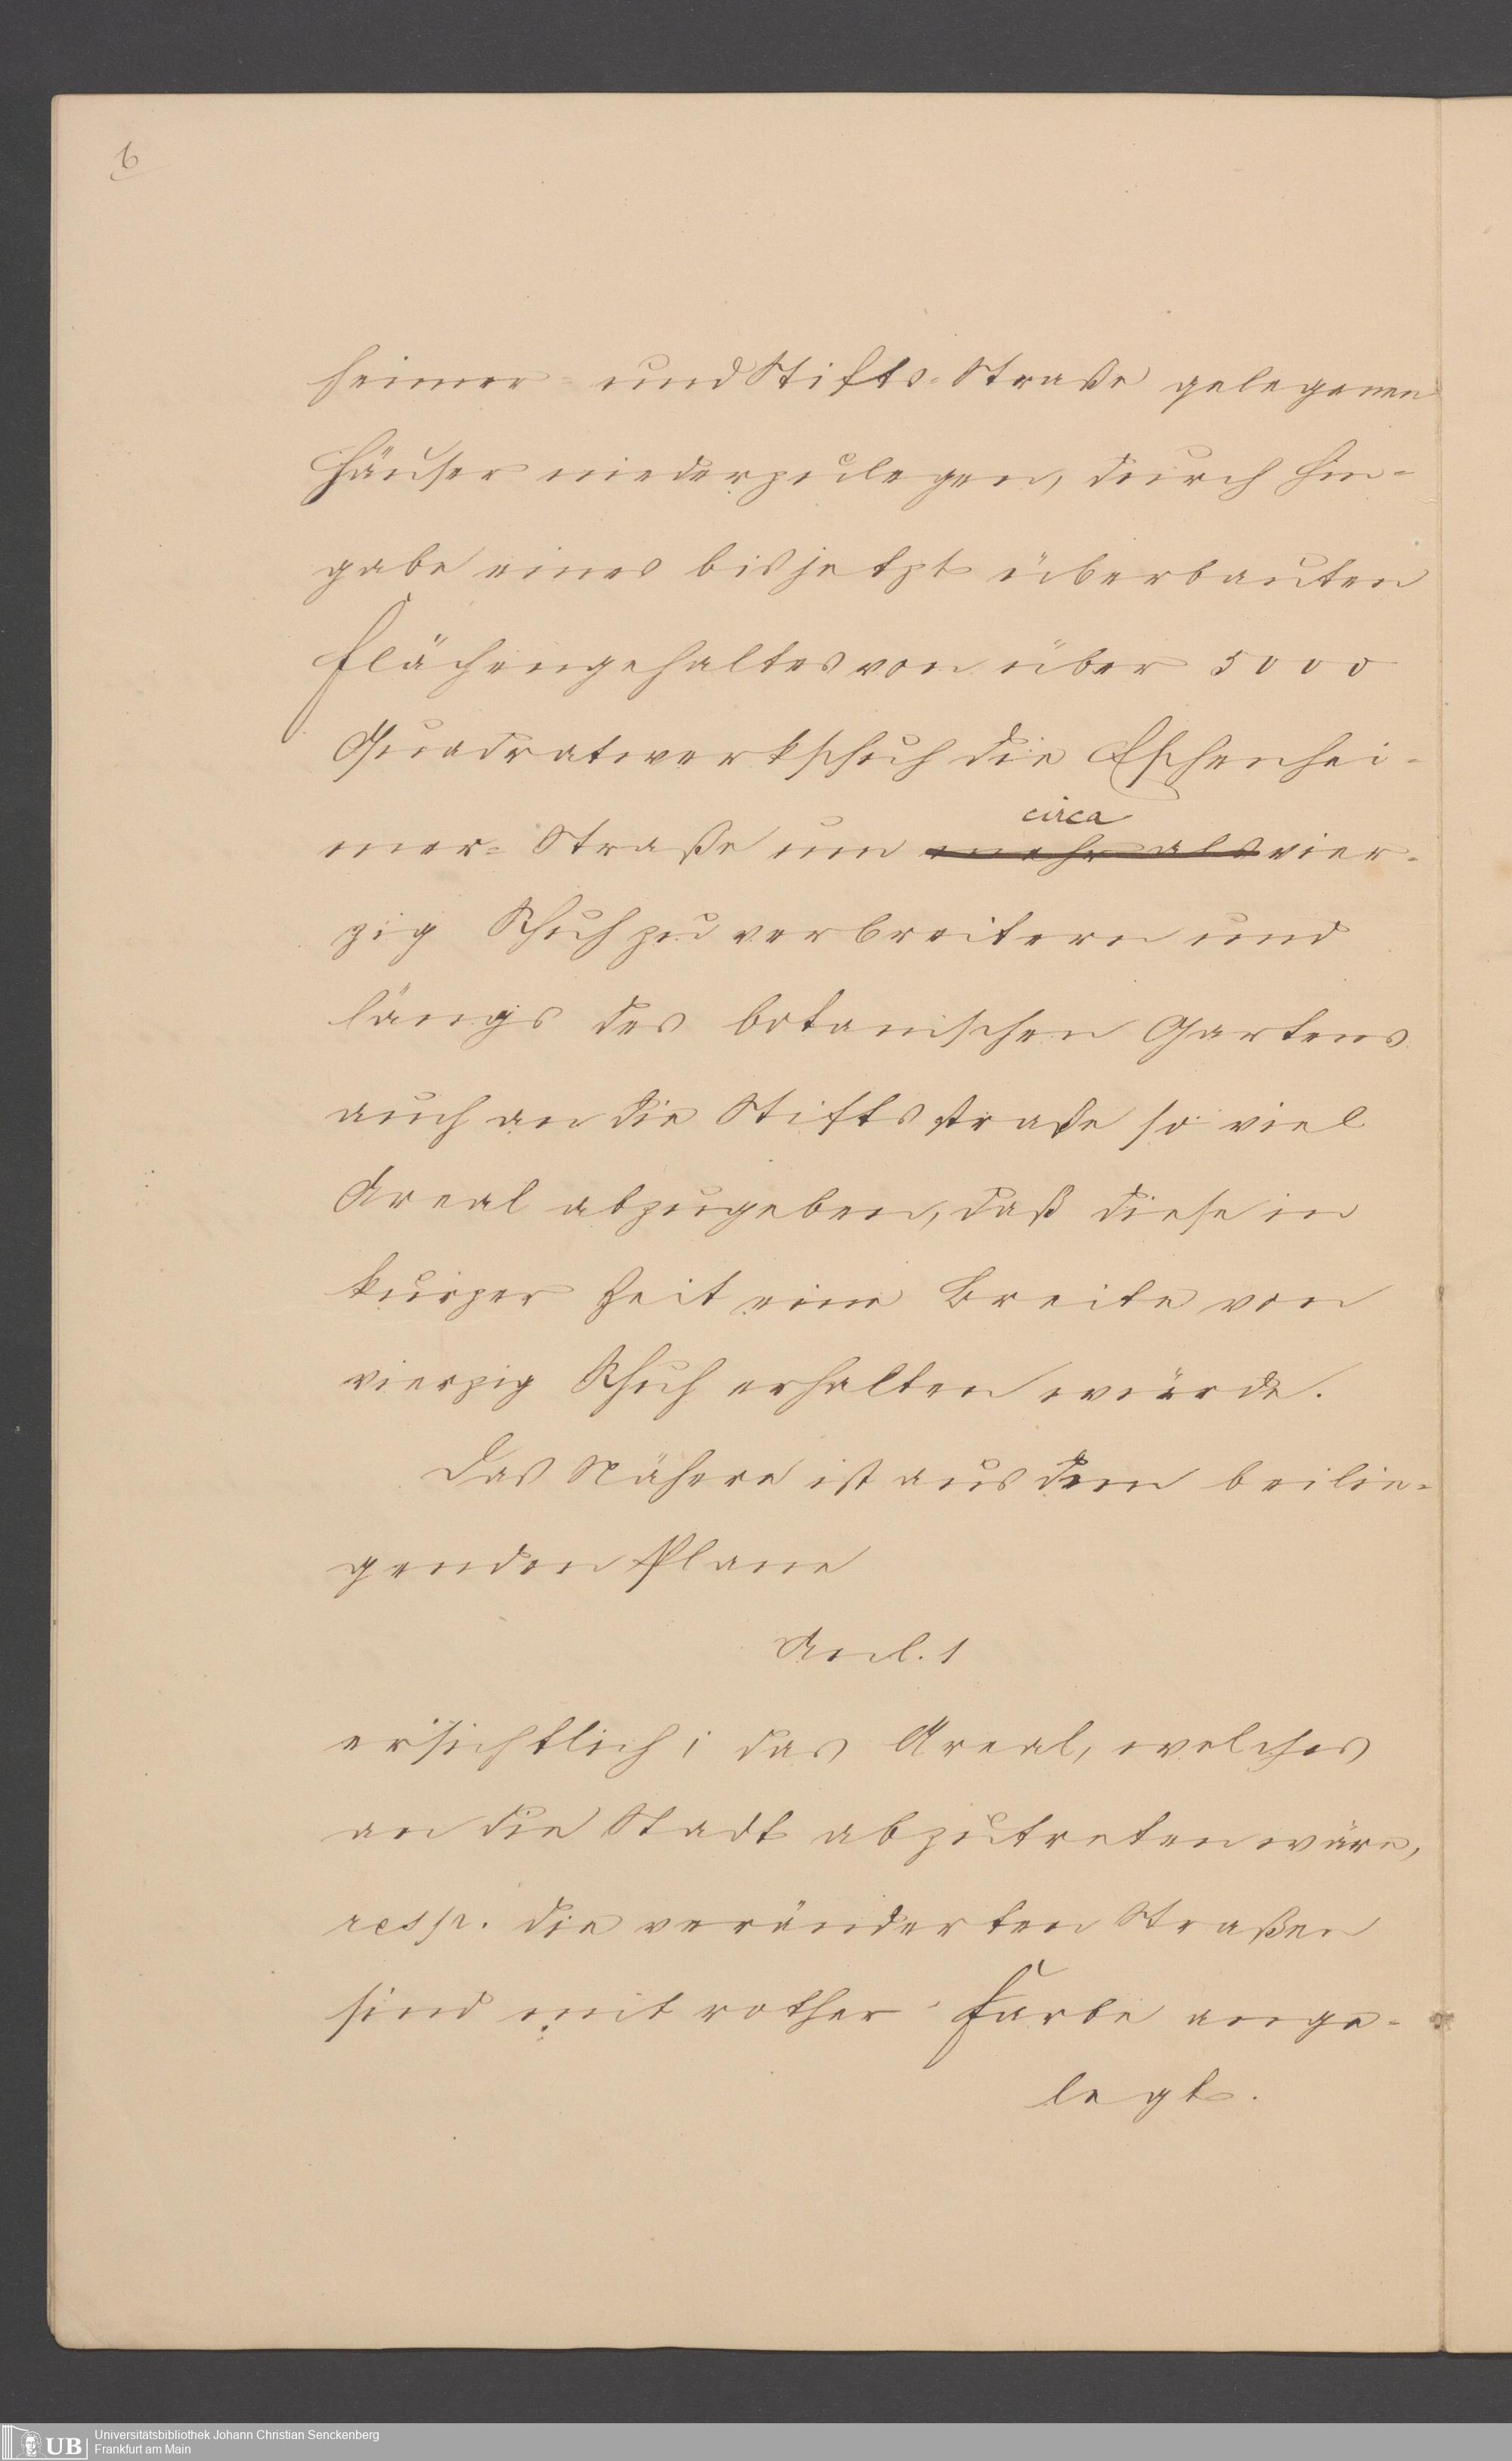 6
heimer- und Stifts-Straße gelegenen
Häuser niederzulegen, durch Hin-
gabe eines bis jetzt überbauten
Flächengehaltes von über 5000
Quadratwerkschuh die Eschenhei-
circa
mer-Straße um mehr als vier-
zig Schuh zu verbreitern und
längs des botanischen Gartens
auch an die Stiftsstraße so viel
Areal abzugeben, daß diese in
kurzer Zeit eine Breite von
vierzig Schuh erhalten würde.
Das Nähere ist aus dem beilie-
genden Plane
Anl. 1
ersichtlich; das Areal, welches
an die Stadt abzutreten wäre,
resp. die veränderten Straßen
sind mit rother Farbe ange-
legt.
UB
Universitätsbibliothek Johann Christian Senckenberg
Frankfurt am Main